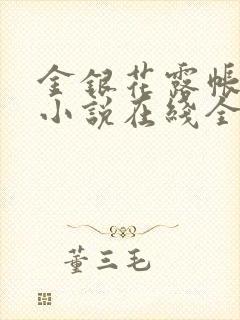 金银花露帐
小说在线全
董三毛